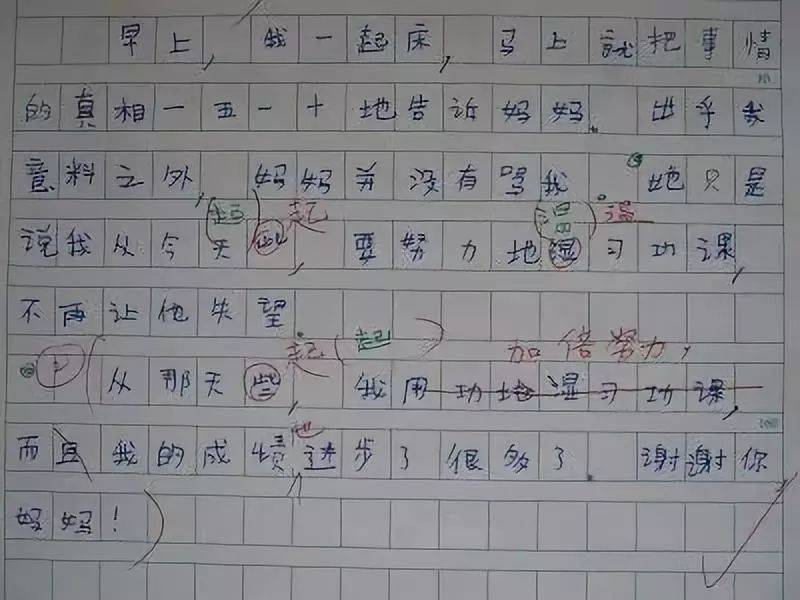 早上，我一起床，马上就把事情
的真相一五一十地告诉妈妈。出乎我
意料之外，妈妈并没有骂我。她只是
(起) 起 (温) 温
说我从今天些，要努力地湿习功课，
不再让他失望。
起 (起) 加倍努力，
从那天些，我用功地湿习功课，
他
而且我的成绩，进步了很多了。谢谢你
妈妈！